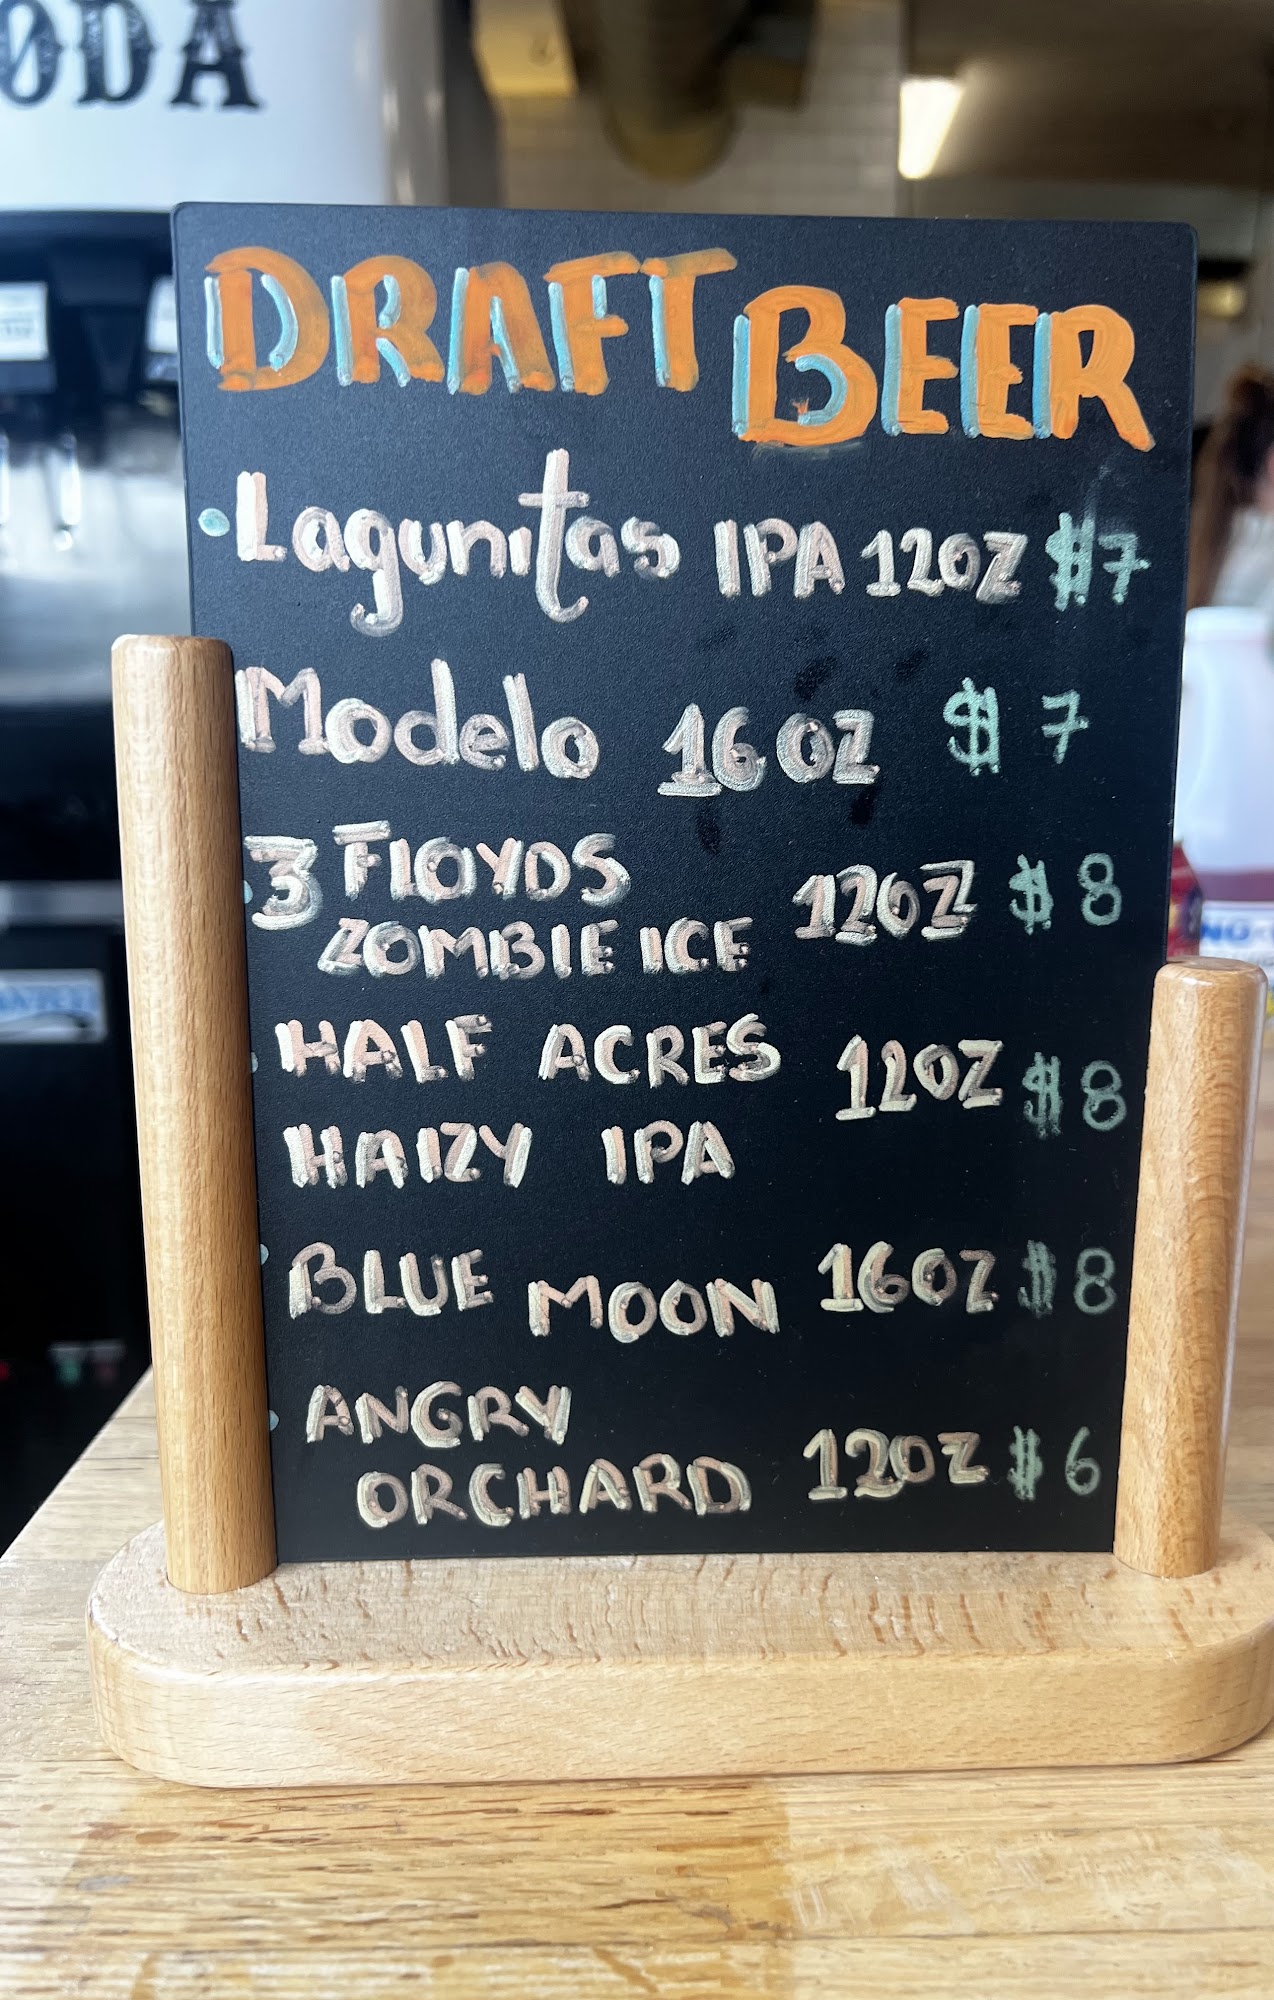 ODA
DRAFT BEER
Lagunitas IPA 12OZ $7
Modelo 16 OZ $7
3 FLOYDS
ZOMBIE ICE 12OZ $8
HALF ACRES 12OZ $8
HAIZY IPA
BLUE MOON 16OZ $8
ANGRY
ORCHARD 12OZ $6